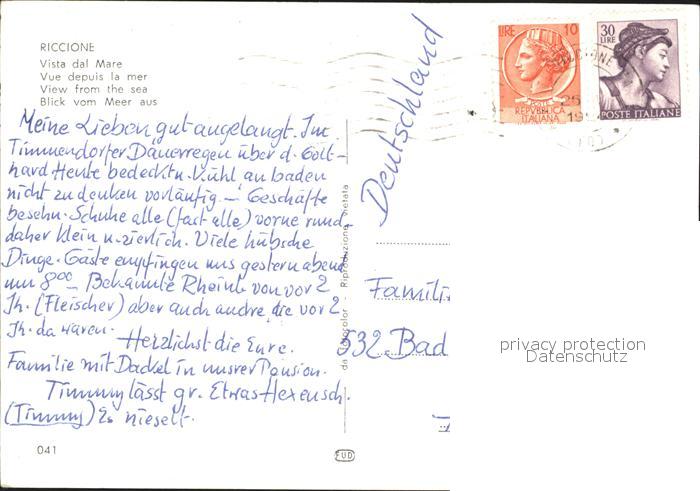 RICCIONE
Vista dal Mare
Vue depuis la mer
View from the sea
Blick vom Meer aus
Meine Lieben, gut angelangt. Im
Timmendorfer Dauerregen über d. Gott-
hard Heute bedeckt u. Kühl an baden
nicht zu denken vorläufig. – Geschäfte
besehn. Schuhe alle (fast alle) vorne rund
daher klein u. zierlich. Viele hübsche
Dinge. Gäste empfingen uns gestern abend
um 8 00 – Bekannte von vor 2
Jh. (Fleischer) aber auch andre, die vor 2
Jh. da waren.
Herzlichst die Eure.
Familie mit Dackel in unsrer Pension.
Timmy lässt gr. Etwas Hexensch.
(Timmy) Es nieselt.
041
da Fotocolor - Riproduzione vietata
FUD
Deutschland
LIRE 10
REPVBBLICA
ITALIANA
30
LIRE
POSTE ITALIANE
25
Famili
532 Bad
privacy protection
Datenschutz